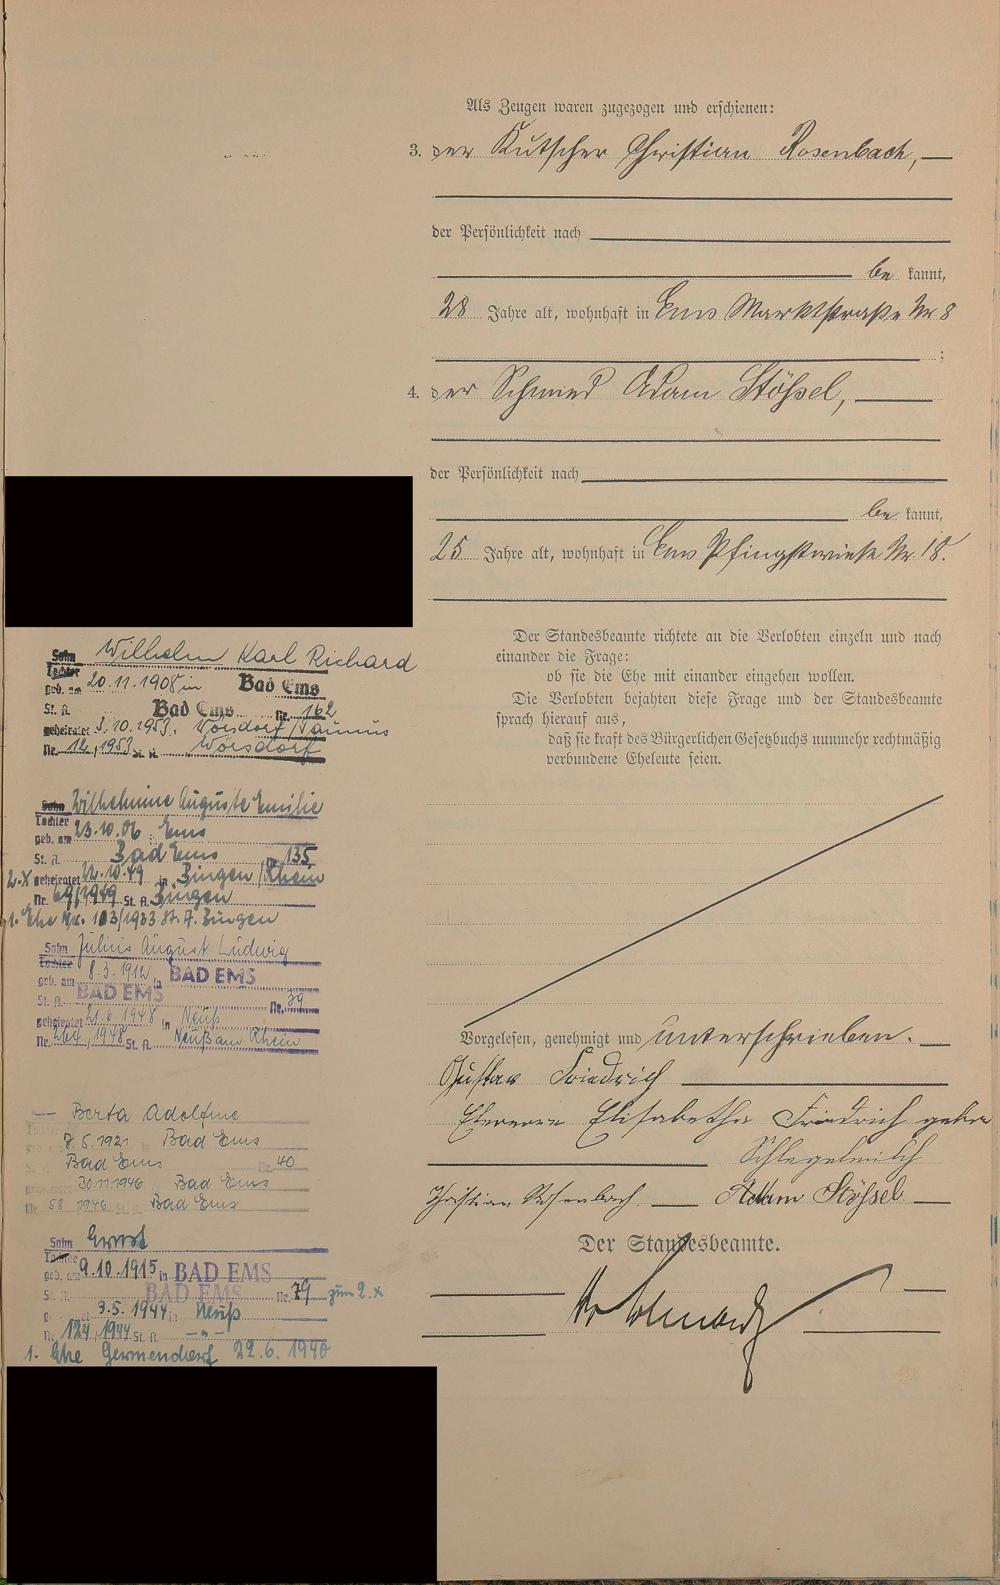 Als Zeugen waren zugezogen und erschienen:
3. der Kutscher Christian Rosenbach,
der Persönlichkeit nach
be kannt,
28 Jahre alt, wohnhaft in Ems Marktstraße Nr. 8
;
4. der Schmied Adam Stößel,
der Persönlichkeit nach
be kannt,
25 Jahre alt, wohnhaft in Ems Pfingstwiese Nr. 18.
Der Standesbeamte richtete an die Verlobten einzeln und nach
einander die Frage:
ob sie die Ehe mit einander eingehen wollen.
Die Verlobten bejahten diese Frage und der Standesbeamte
sprach hierauf aus,
daß sie kraft des Bürgerlichen Gesetzbuchs nunmehr rechtmäßig
verbundene Eheleute seien.
Vorgelesen, genehmigt und unterschrieben.
Gustav Friedrich
Elisabetha Friedrich gebor
Schlegelmilch
Christian Rosenbach. Adam Stößel
Der Standesbeamte.
Sohn Wilhelm Karl Richard
Tochter
geb. am 20.11.1908 in Bad Ems
St. A. Bad Ems Nr. 162
geheiratet 3.10.1953. Wörsdorf/Taunus
Nr. 12, 1953 St. A. Wörsdorf
Sohn Wilhelmine Auguste Emilie
Tochter
geb. am 23.10.06 Ems
St. A. Bad Ems Nr. 135
2.X geheiratet 22.10.49 in Bingen/Rhein
Nr. 69/1949 St. A. Bingen
1. Ehe Nr. 103/1933 St. A. Bingen
Sohn Julius August Ludwig
Tochter
geb. am 8.3.1912 in BAD EMS
St. A. BAD EMS Nr. 39
geheiratet 21.6.1948 in Neuß
Nr. 264, 1948 St. A. Neuß am Rhein
Berta Adolfine
7.5.1921 Bad Ems
Bad Ems Nr. 40
30.11.1946 Bad Ems
Nr. 58 1946 St. A. Bad Ems
Sohn Ernst
Tochter
geb. am 9.10.1915 in BAD EMS
St. A. BAD EMS Nr. 79 zum 2.X
3.5.1944 in Neuß
Nr. 124, 1944 St. A. -"-
1. Ehe Germendorf 22.6.1940